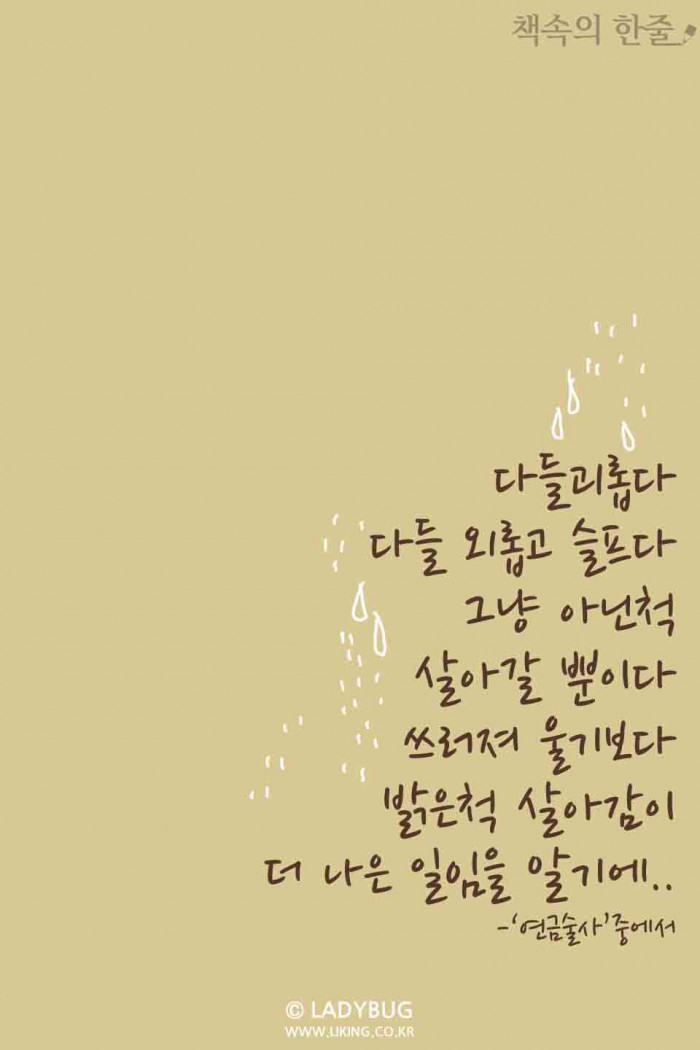 책속의 한줄
다들괴롭다
다들 외롭고 슬프다
그냥 아닌척
살아갈 뿐이다
쓰러져 울기보다
밝은척 살아감이
더 나은 일임을 알기에..
-'연금술사'중에서
© LADYBUG
WWW.LIKING.CO.KR